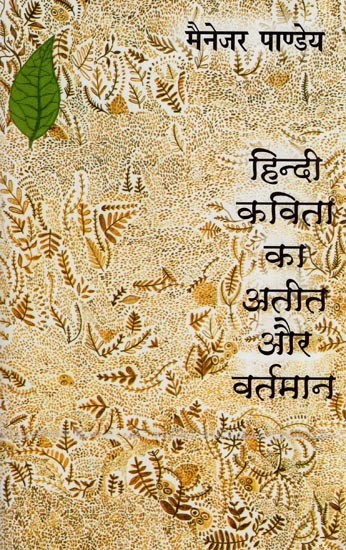 मैनेजर पाण्डेय
हिन्दी
कविता
का
अतीत
और
वर्तमान